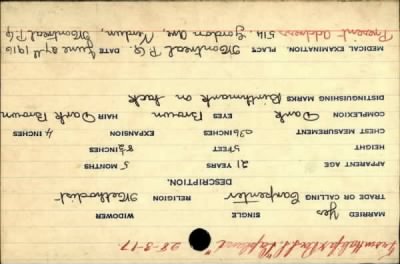 From Halifax Per S.S. "Lapland" 28-3-17
MARRIED yes SINGLE WIDOWER
TRADE OR CALLING Carpenter RELIGION Methodist
DESCRIPTION.
APPARENT AGE 21 YEARS 5 MONTHS
HEIGHT 5 FEET 8½ INCHES
CHEST MEASUREMENT 36 INCHES EXPANSION 4 INCHES
COMPLEXION Dark EYES Brown HAIR Dark Brown
DISTINGUISHING MARKS Birthmark on back
MEDICAL EXAMINATION. PLACE Montreal P.Q. DATE June 27th 1916
Present address, 514, Gordon Ave, Verdun, Montreal P.Q